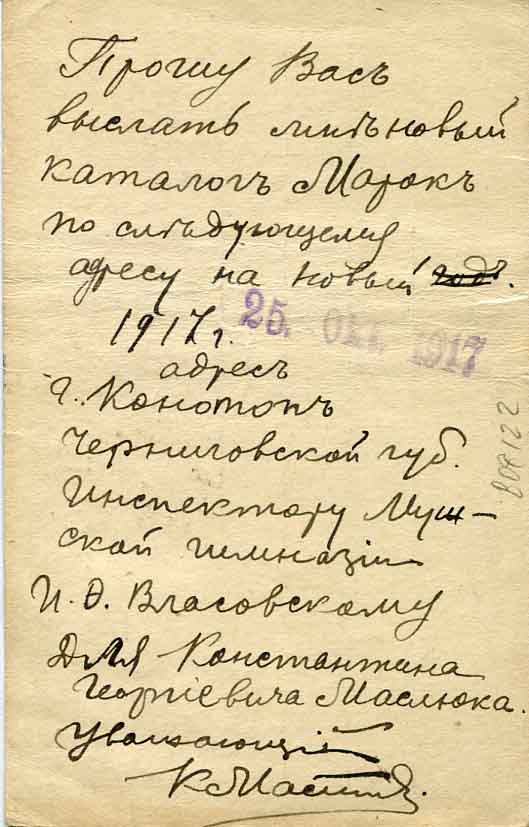 Прошу Васъ
выслать мнѣ новый
каталогъ Марокъ
по слѣдующему
адресу на новый годъ.
1917 г.
25. ОКТ. 1917
адресъ
г. Конотопъ
Черниговской губ.
Инспектору Муж-
ской гимназіи
И. Ѳ. Власовскому
Для Константина
Георгіевича Маслюка.
Уважающій
К Маслюк